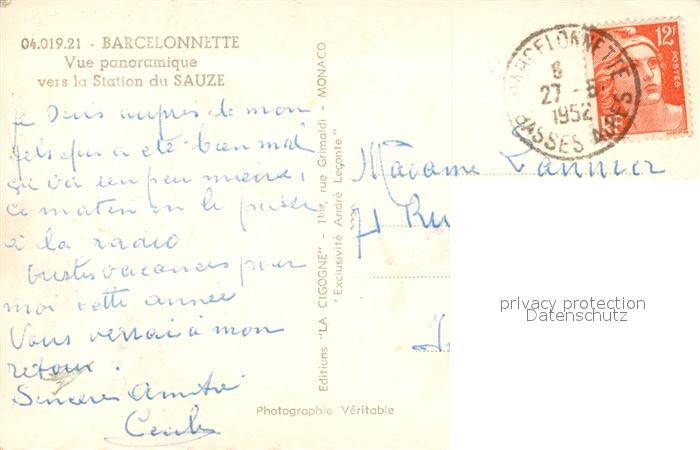 04.019.21 - BARCELONNETTE
Vue panoramique
vers la Station du SAUZE
je suis auprès de mon
fils qui a été bien mal
ça va un peu mieux,
ce matin on le passe
à la radio
tristes vacances pour
moi cette année
Vous verrai à mon
retour.
Sincères Amitiés
Cécile
Editions "LA CIGOGNE" - 1bis, rue Grimaldi - MONACO
"Exclusivité André Leconte"
Photographie Véritable
BARCELONNETTE
8
27 - 8
1952
BASSES ALPES
12F
POSTES
Madame Lannier
71 Ru
privacy protection
Datenschutz